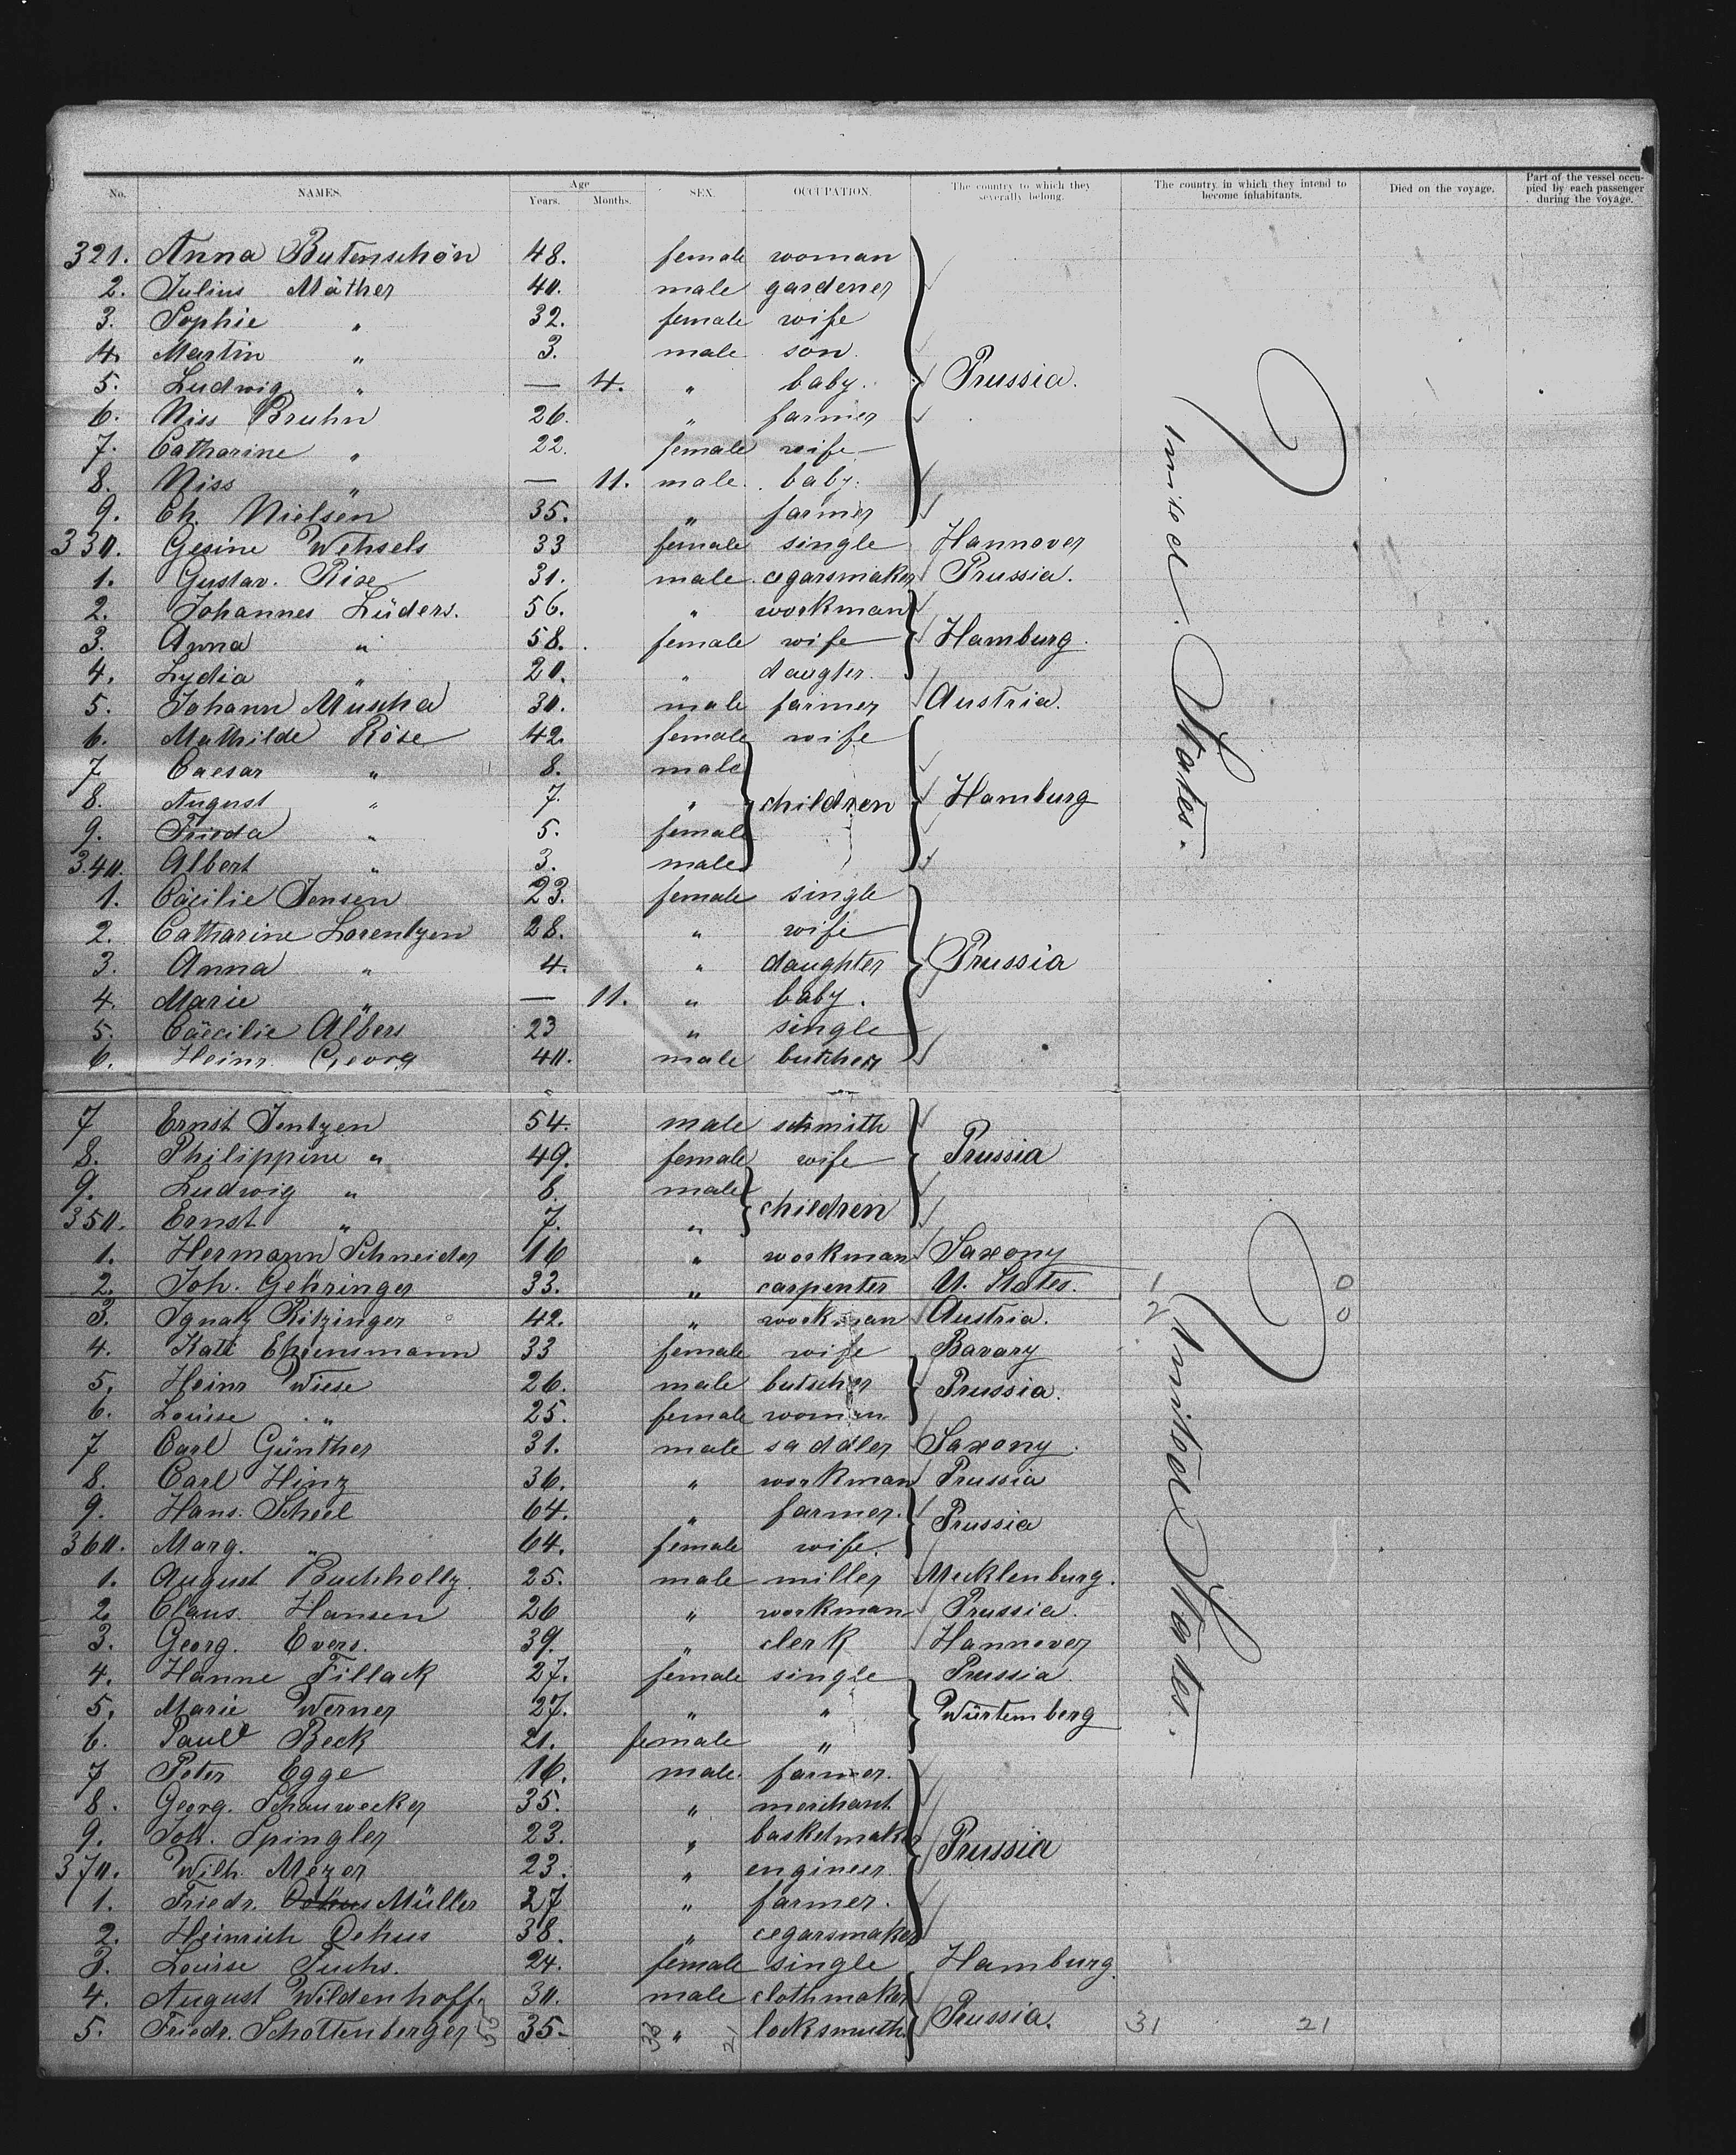 No. NAMES. Age Years. Months. SEX. OCCUPATION. The country to which they severally belong. The country in which they intend to become inhabitants. Died on the voyage. Part of the vessel occupied by each passenger during the voyage.
321. Anna Butenschön 48. female woman
2. Julius Mäther 40. male gardener
3. Sophie " 32. female wife
4. Martin " 3. male son.
5. Ludwig " — 4. " baby. Prussia.
6. Niss Bruhn 26. " farmer
7. Catharine " 22. female wife
8. Niss " — 11. male baby.
9. Ch. Nielsen 35. " farmer
330. Gesine Wehsels 33 female single Hannover
1. Gustav. Rise 31. male cegarsmaker Prussia.
2. Johannes Lüders. 56. " workman
3. Anna " 58. female wife Hamburg.
4. Lydia " 20. " daugter.
5. Johann Muscha 30. male farmer Austria.
6. Mathilde Röse 42. female wife
7 Caesar " 8. male
8. August " 7. " children Hamburg
9. Frieda " 5. female
340. Albert " 3. male
1. Cäcilie Jensen 23. female single
2. Catharine Lorentzen 28. " wife
3. Anna " 4. " daughter Prussia
4. Marie " — 11. " baby.
5. Cäecilie Albers 23 " single
6. Heinr. Georg 40. male butcher
United States.
7 Ernst Jentzen 54. male schmith
8. Philippine " 49. female wife Prussia
9. Ludwig " 8. male children
350. Ernst " 7. "
1. Hermann Schneider 16 " workman Saxony
2. Joh. Gehringer 33. " carpenter U. States. 1 0
3. Ignatz Ritzinger 42. " workman Austria. 2 0
4. Kati Ehrensmann 33 female wife Bavary
5. Heinr Wiese 26. male butscher Prussia.
6. Louise " 25. female woman
7 Carl Günther 31. male saddler Saxony.
8. Carl Hinz 36. " workman Prussia
9. Hans. Scheel 64. " farmer. Prussia
360. Marg. " 64. female wife.
1. August Buchholtz. 25. male miller Mecklenburg.
2. Claus. Hansen 26 " workman Prussia.
3. Georg. Evers. 39. " clerk Hannover
4. Hanne Fillack 27. female single Prussia
5. Marie Werner 27. " " Würtemberg
6. Paule Beck 21. female "
7 Peter Egge 16. male. farmer.
8. Georg. Schauwecker 35. " merchant
9. Joh. Spingler 23. " basketmaker Prussia
370. Wilh. Mezer 23. " engineer
1. Friedr. Oehus Müller 27 " farmer.
2. Heinrich Oehus 38. " cegarsmaker
3. Louise Fuchs. 24. female single Hamburg.
4. August Wildenhoff. 30. male clothmaker
5. Friedr. Schottenberger 35. " locksmith Prussia. 31 21
United States.